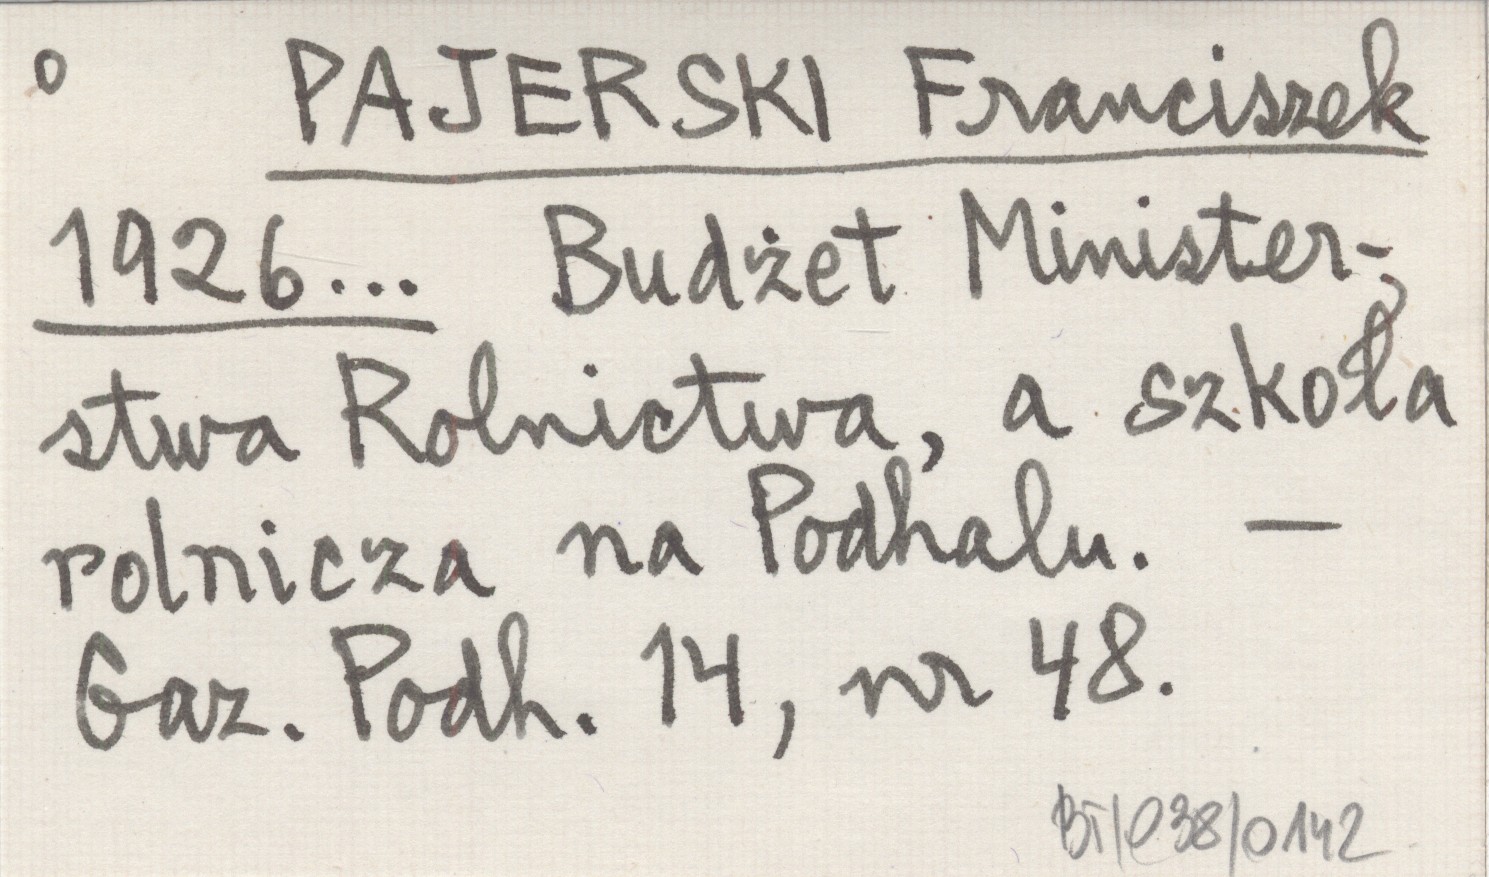 o PAJERSKI Franciszek
1926... Budżet Minister-
stwa Rolnictwa, a szkoła
rolnicza na Podhalu. —
Gaz. Podh. 14, nr 48.
BT/038/0142